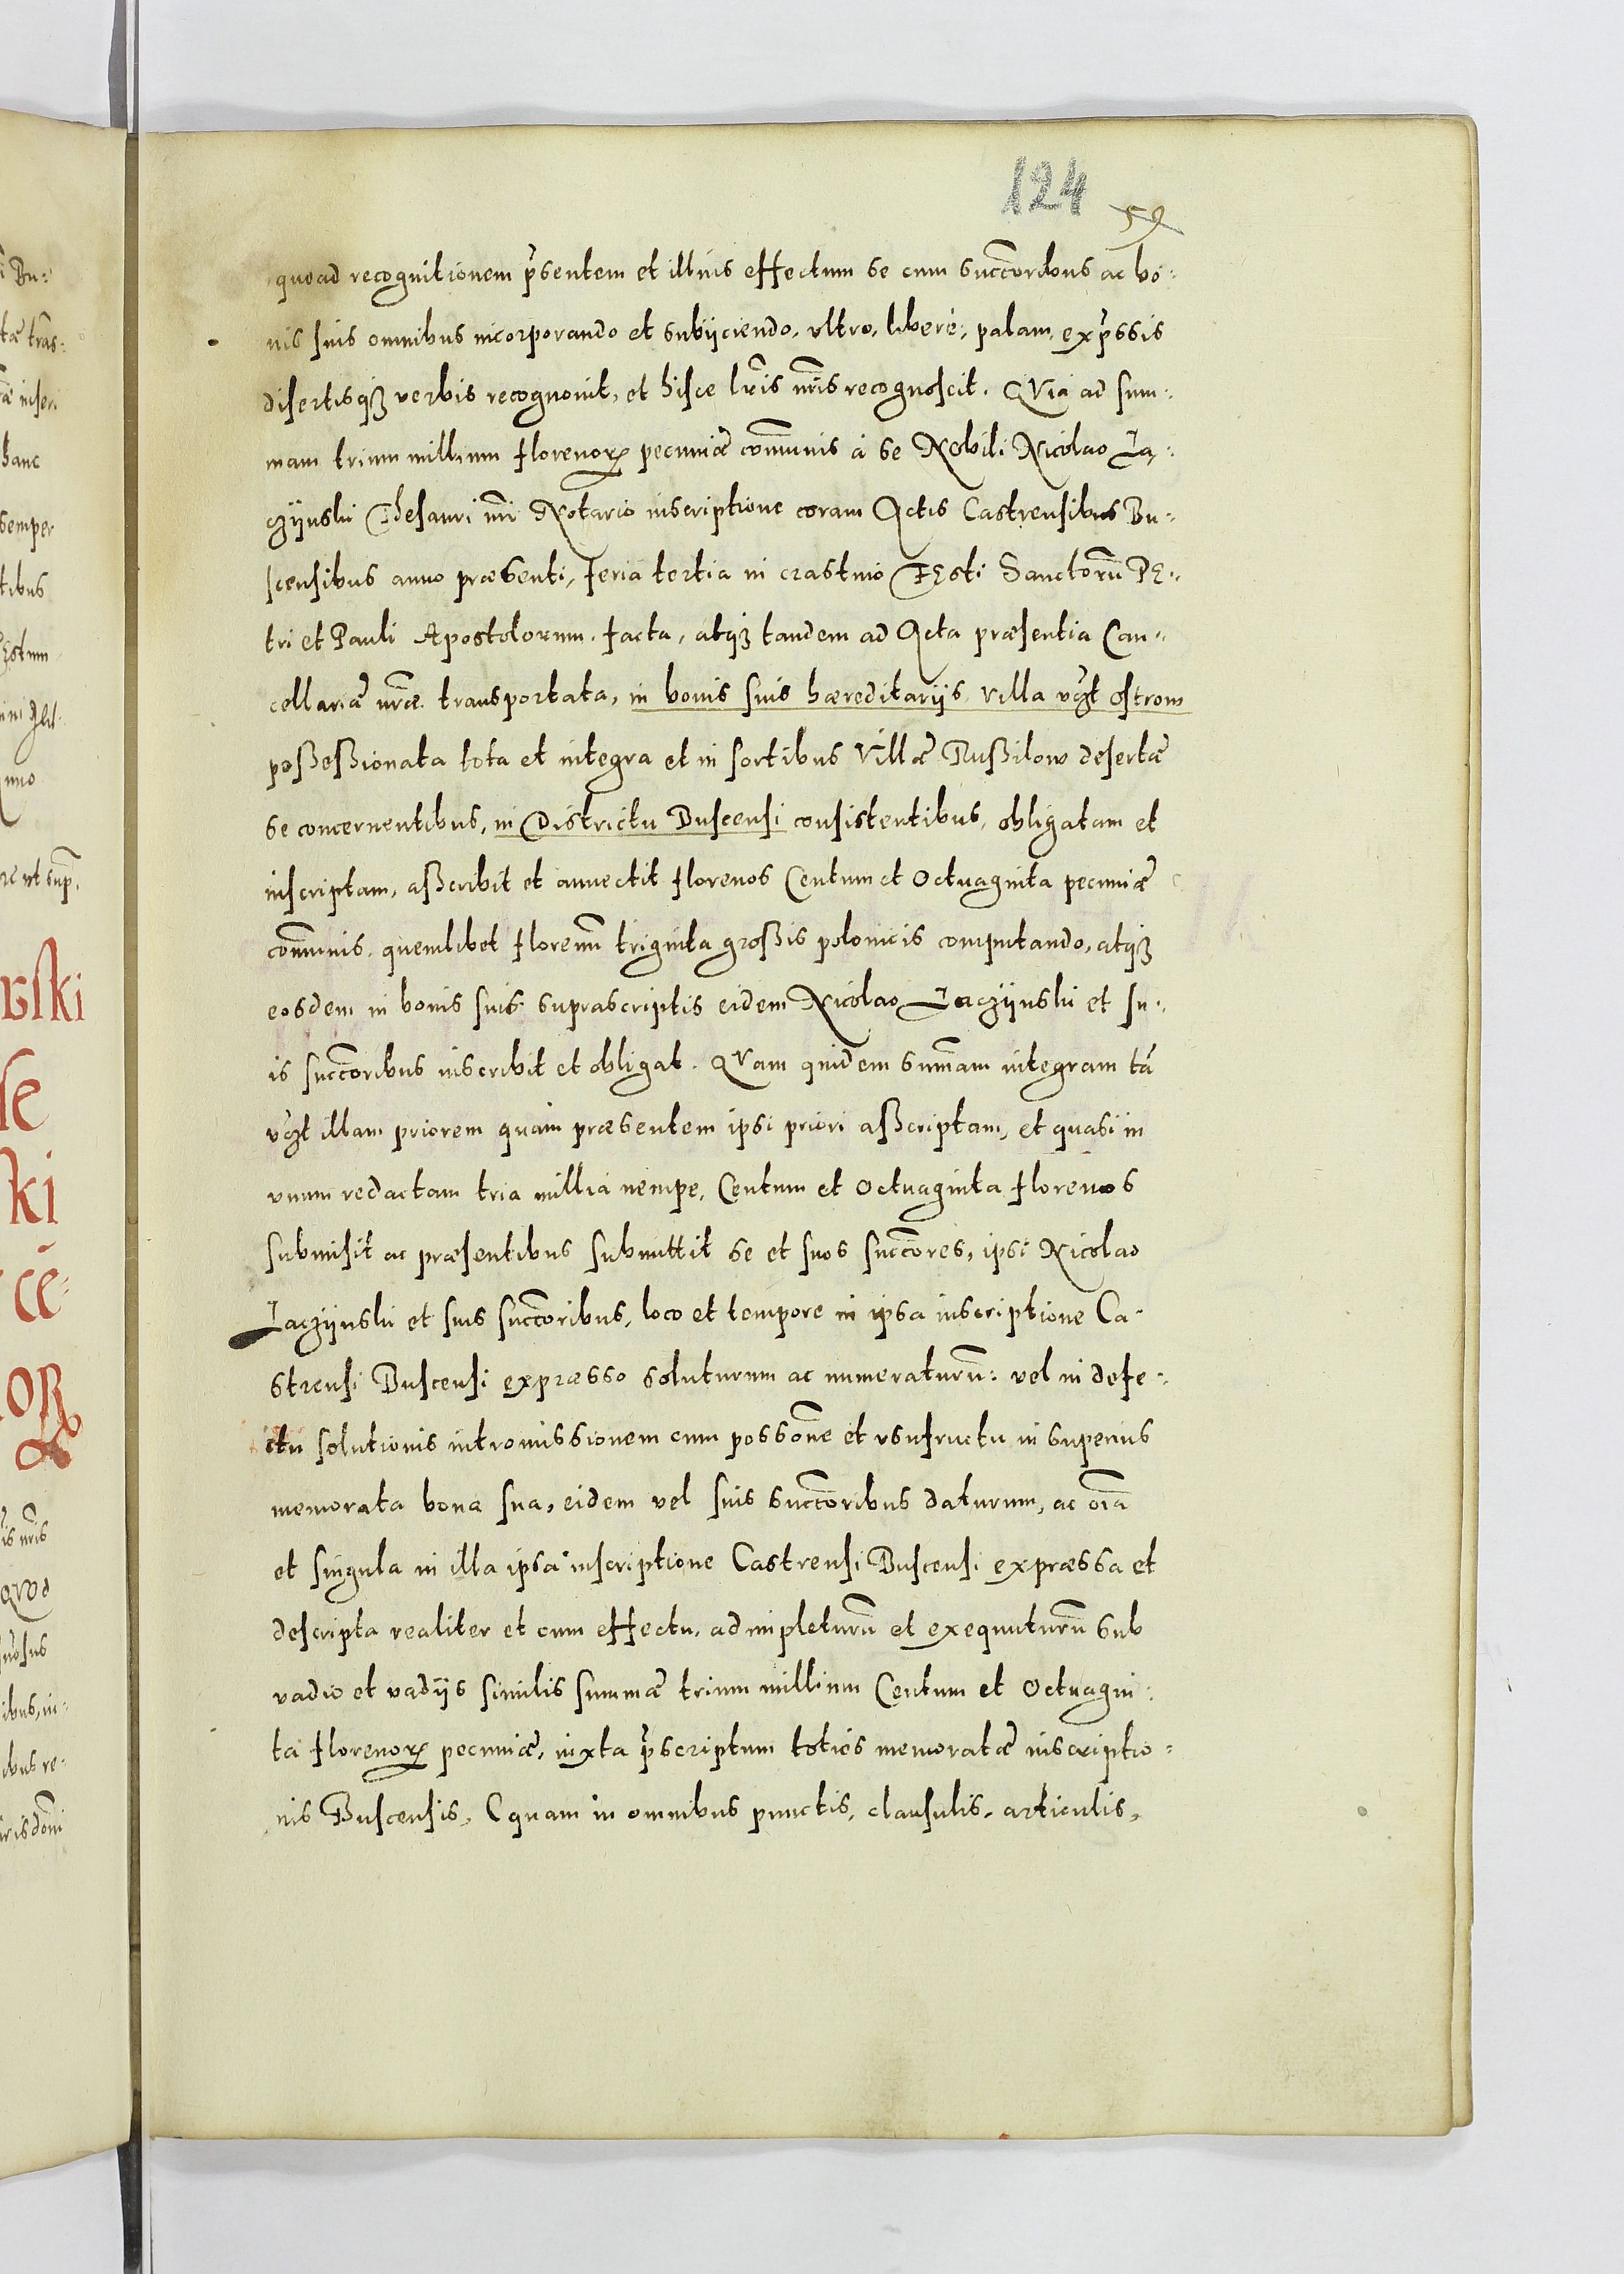 124
59
quoad recognitionem p̄sentem et illius effectum se cum succ̄oribus ac bo:
nis suis omnibus incorporando et subijciendo, ultro, liberè, palam, exp̄ssis
disertisqꝫ verbis recognovit, et hisce lr̄is nr̄is recognoscit. QVia ad sum:
mam trium millium florenoꝝ pecuniæ com̄unis à se Nobili Nicolao Ła:
czijnski Thesauri nr̄i Notario inscriptione coram Actis Castrensibus Bu:
scensibus anno præsenti, feria tertia in crastino FEsti Sanctorū PE:
tri et Pauli Apostolorum. facta, atqꝫ tandem ad Acta præsentia Can:
cellariæ nr̄æ transportata, in bonis suis hæreditarijs, villa vꝫt Ostrow
poßeßionata tota et integra et in sortibus Villæ Rußilow desertæ
se concernentibus, in Districtu Buscensi consistentibus, obligatam et
inscriptam, aßcribit et annectit florenos Centum et Octuaginta pecuniæ
com̄unis, quemlibet florenū triginta großis polonicis computando, atqꝫ
eosdem in bonis suis suprascriptis eidem Nicolao Łaczijnski et su:
is succ̄oribus inscribit et obligat. QVam quidem sum̄am integram tā
vꝫt illam priorem quàm præsentem ipsi priori aßcriptam, et quasi in
unum redactam tria millia nempe, Centum et Octuaginta florenos
submisit ac præsentibus submittit se et suos succ̄ores, ipsi Nicolao
Łaczijnski et suis succ̄oribus, loco et tempore in ipsa inscriptione Ca:
strensi Buscensi expræsso soluturum ac numeraturū: vel in defe:
ctu solutionis intromissionem cum possōne et usufructu in superius
memorata bona sua, eidem vel suis succ̄oribus daturum, ac oīa
et singula in illa ipsa inscriptione Castrensi Buscensi expræssa et
descripta realiter et cum effectu, adimpleturū et exequuturū sub
vadio et vadijs similis summæ trium millium Centum et Octuagin:
ta florenoꝝ pecuniæ, iuxta p̄scriptum toties memoratæ inscriptio:
nis Buscensis, Cquam in omnibus punctis, clausulis, articulis,